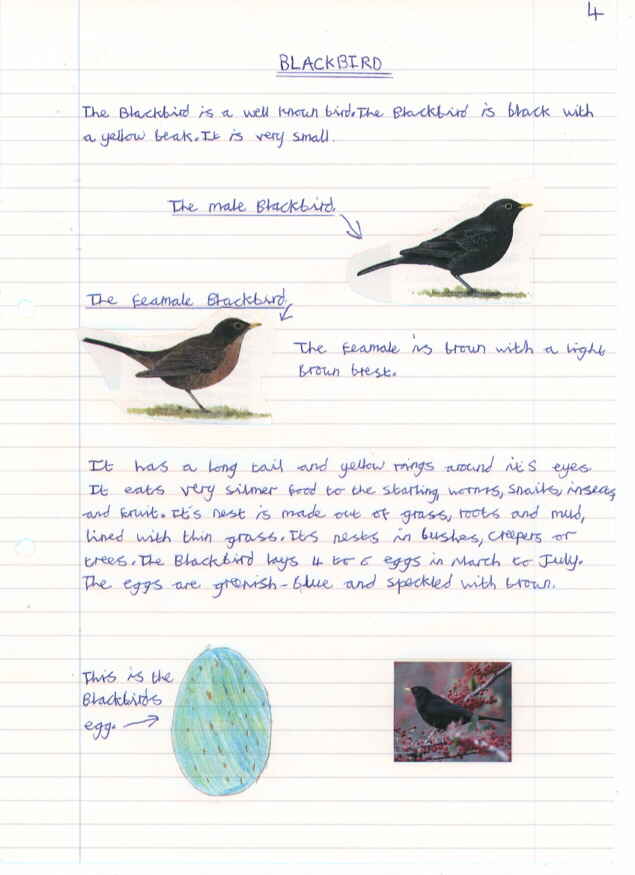 4
BLACKBIRD
The Blackbird is a well known bird. The Blackbird is black with
a yellow beak. It is very small.
The male Blackbird.
The feamale Blackbird.
The feamale is brown with a light
brown brest.
It has a long tail and yellow rings around it's eyes.
It eats very silmer food to the starling, worms, snails, insects
and fruit. It's nest is made out of grass, roots and mud,
lined with thin grass. Its nests in bushes, creepers or
trees. The Blackbird lays 4 to 6 eggs in March to July.
The eggs are grenish-blue and speckled with brown.
This is the
Blackbirds
egg.